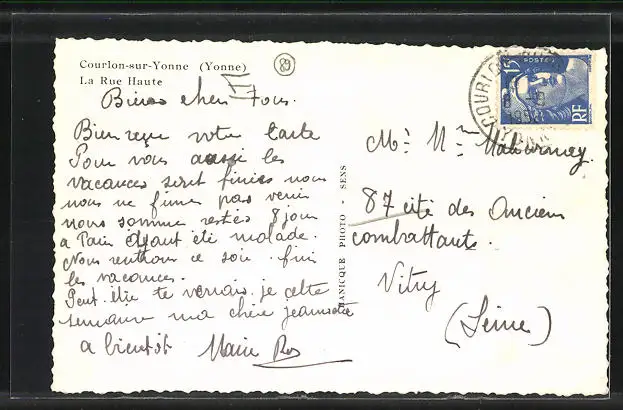 Courlon-sur-Yonne (Yonne)
La Rue Haute
89
Biens chers Tous.
Bien reçue votre Carte
Pour vous aussi les
vacances seront finies nous
nous ne fimes pas venir
nous somme restés 8 jour
a Paris ayant été malade.
Nous rentrons ce soir fini
les vacances.
Peut être te verrais je cette
semaine ma chère jeannette
a bientôt Marie
MANICQUE PHOTO - SENS
15F POSTES
RF
COURLON
YONNE
Mr Mme
87 cité des Anciens
combattants.
Vitry
(Seine)